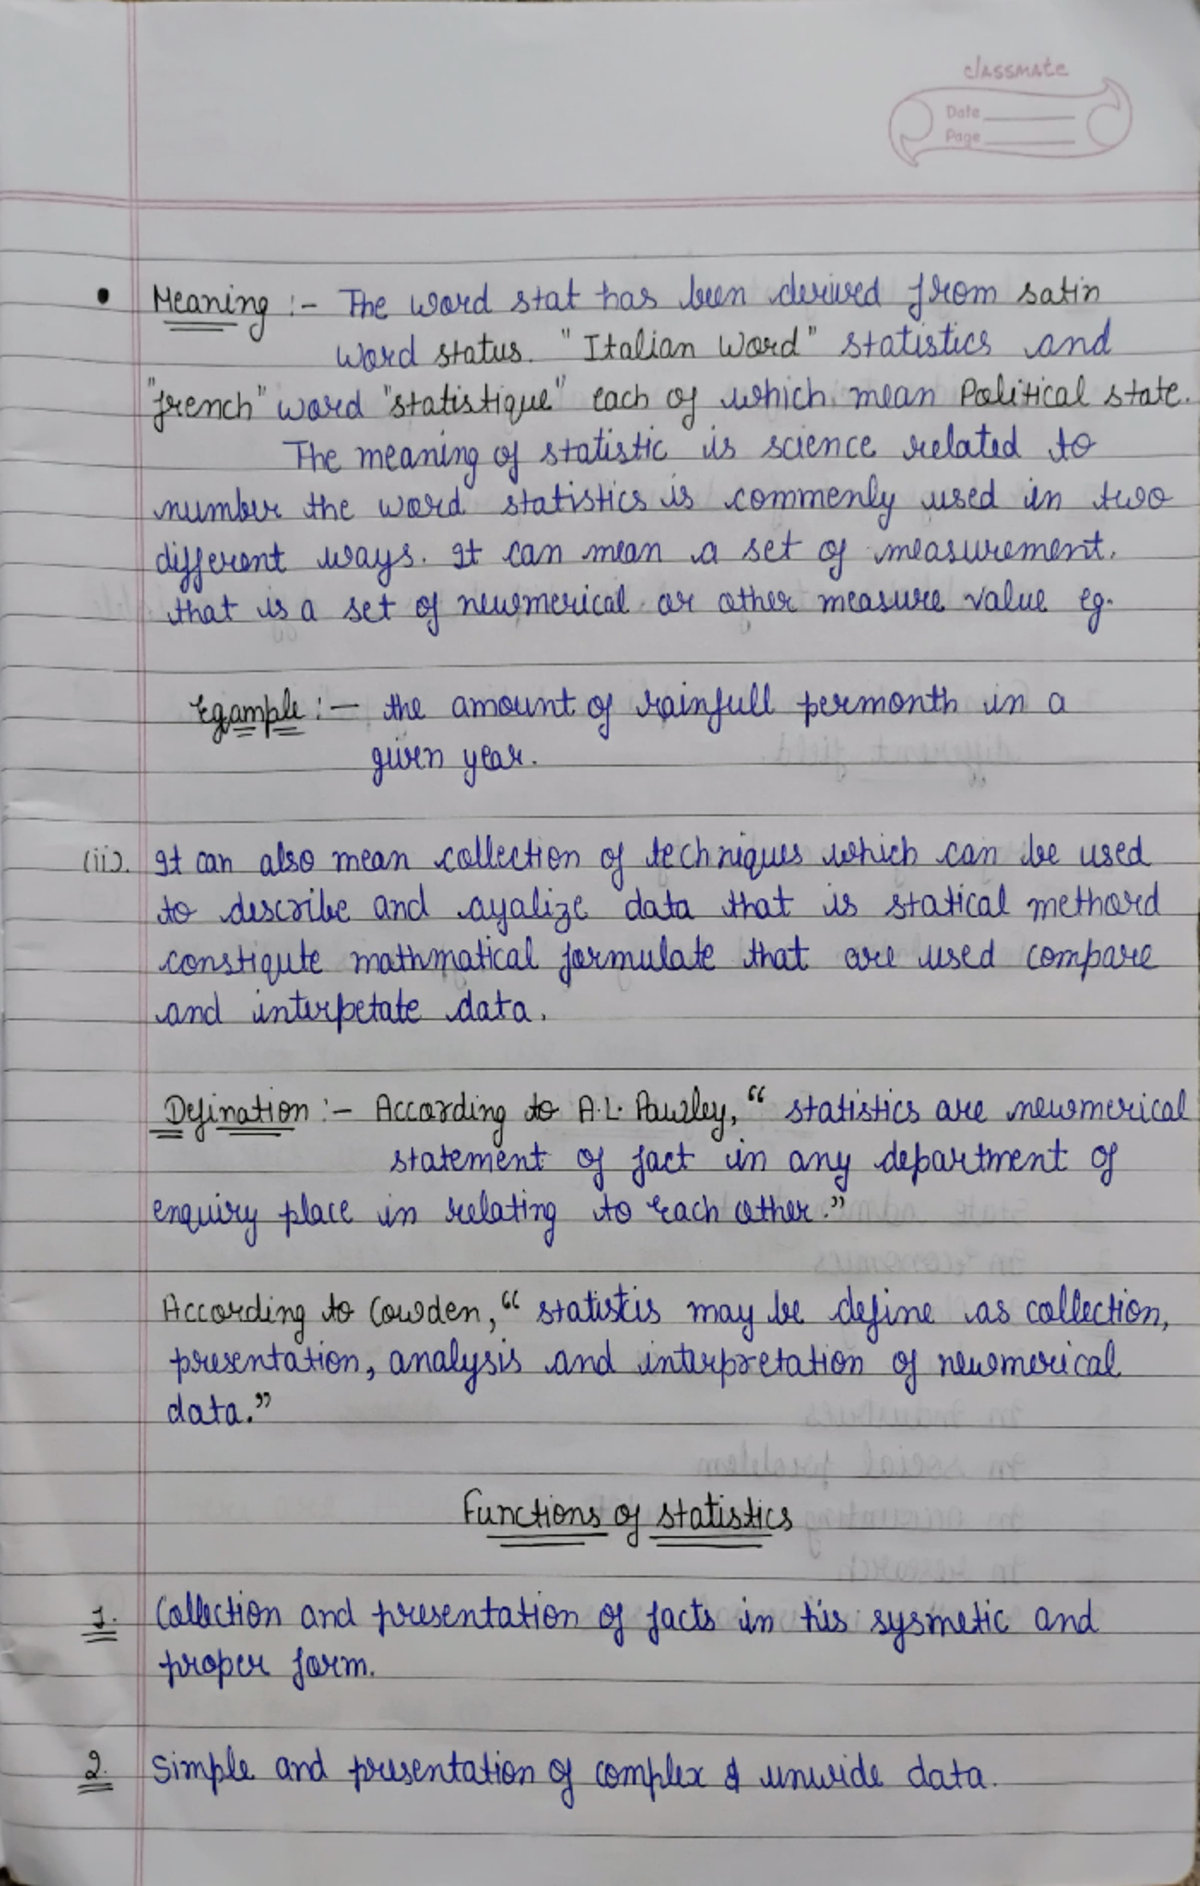 classmate
Date
Page
• Meaning :- The word stat has been derived from satin
word status. "Italian word" statistics and
"french" word "statistique" each of which mean Political state.
The meaning of statistic is science related to
number the word statistics is commenly used in two
different ways. It can mean a set of measurement.
that is a set of newmerical or other measure value eg.
Egample :- the amount of rainfull permonth in a
given year.
(ii). It can also mean collection of techniques which can be used
to describe and ayalize data that is statical methord
constiqute mathmatical formulate that are used compare
and interpetate data.
Defination :- According to A.L. Pawley, “ statistics are newmerical
statement of fact in any department of
enquiry place in relating to each other.”
According to Cowden, “ statistis may be define as collection,
presentation, analysis and interpretation of newmerical
data.”
Functions of statistics
1. Collection and presentation of facts in his sysmetic and
proper form.
2. Simple and presentation of complex & unwide data.